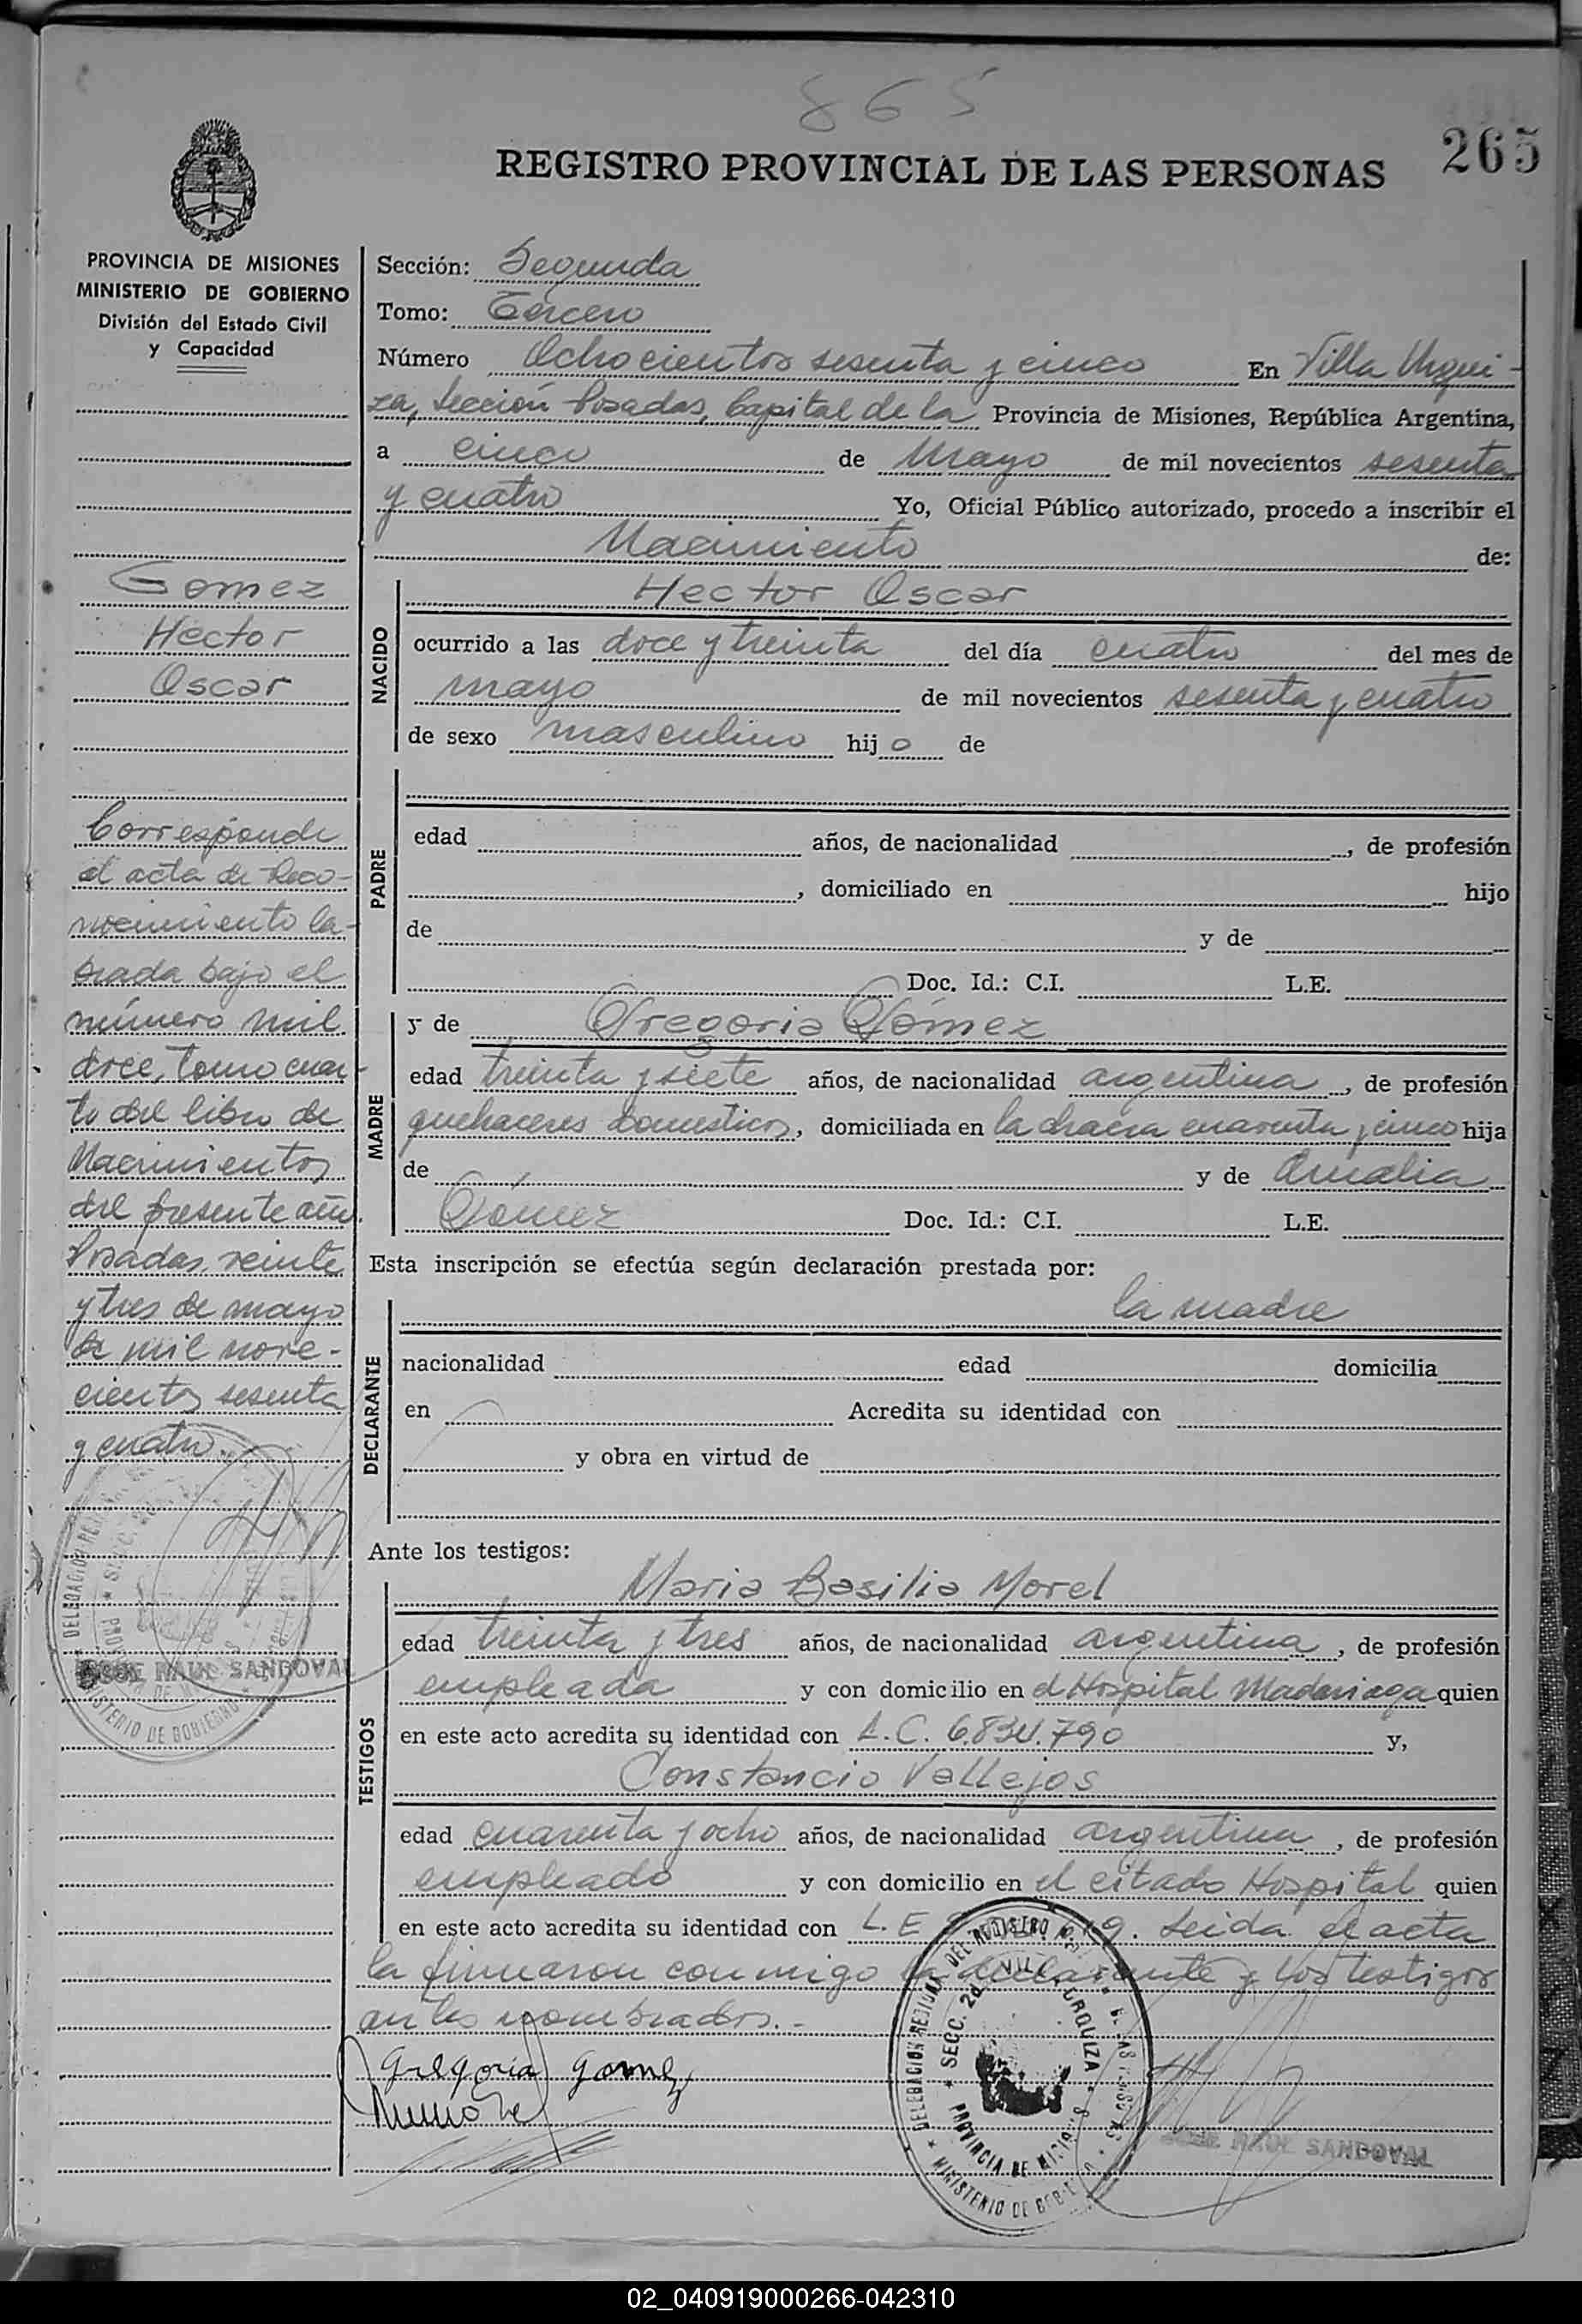 865
265
REGISTRO PROVINCIAL DE LAS PERSONAS
PROVINCIA DE MISIONES
MINISTERIO DE GOBIERNO
División del Estado Civil
y Capacidad
Gomez
Hector
Oscar
Corresponde
el acta de Reco-
nocimiento la-
brada bajo el
número mil
doce, Tomo cuar-
to del libro de
Nacimientos
del presente año.
Posadas, veinte
y tres de mayo
de mil nove-
cientos sesenta
y cuatro.
JOSE RAUL SANDOVAL
Sección: Segunda
Tomo: Tercero
Número Ochocientos sesenta y cinco En Villa Urqui-
za, Sección Posadas, Capital de la Provincia de Misiones, República Argentina,
a cinco de Mayo de mil novecientos sesenta
y cuatro Yo, Oficial Público autorizado, procedo a inscribir el
Nacimiento de:
NACIDO
Hector Oscar
ocurrido a las doce y treinta del día cuatro del mes de
mayo de mil novecientos sesenta y cuatro
de sexo masculino hijo de
PADRE
edad años, de nacionalidad , de profesión
, domiciliado en hijo
de y de
Doc. Id.: C.I. L.E.
MADRE
y de Gregoria Gómez
edad treinta y siete años, de nacionalidad argentina, de profesión
quehaceres domesticos, domiciliada en la chacra cuarenta y cinco hija
de y de Amalia
Gómez Doc. Id.: C.I. L.E.
Esta inscripción se efectúa según declaración prestada por:
DECLARANTE
la madre
nacionalidad edad domicilia
en Acredita su identidad con
y obra en virtud de
Ante los testigos:
TESTIGOS
Maria Basilia Morel
edad treinta y tres años, de nacionalidad argentina, de profesión
empleada y con domicilio en el Hospital Madariaga quien
en este acto acredita su identidad con L.C. 6.834.790 y,
Constancio Vallejos
edad cuarenta y ocho años, de nacionalidad argentina, de profesión
empleado y con domicilio en el citado Hospital quien
en este acto acredita su identidad con L.E. Leida el acta
la firmaron conmigo la declarante y los testigos
antes nombrados.-
Gregoria Gomez
DELEGACION REGIONAL DEL REGISTRO
SECC. 2da VILLA URQUIZA
PROVINCIA DE MISIONES
MINISTERIO DE GOBIERNO
JOSE RAUL SANDOVAL
02_040919000266-042310